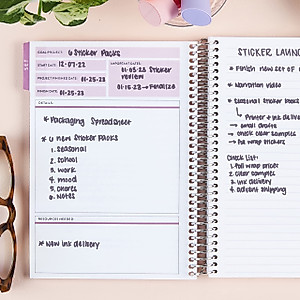 GOAL/PROJECT: 6 Sticker Packs
START DATE: 12-07-22
IMPORTANT DATES:
01-05-23 Sticker review
01-15-23 → Finalize
01-25-23
FINISH DATE: 01-25-23
DETAILS:
* Packaging Spreadsheet
* 6 new sticker packs
1. seasonal
2. school
3. work
4. mood
5. chores
6. notes
RESOURCES NEEDED:
* New ink delivery
STICKER LAUN
* Finish new set of
* Narration video
* Seasonal sticker
Printer + ink
→ email drafts
→ check clear samples
→ Poll wrap prices
Check List:
1. Poll wrap prices
2. Clear samples
3. Ink delivery
4. shipping